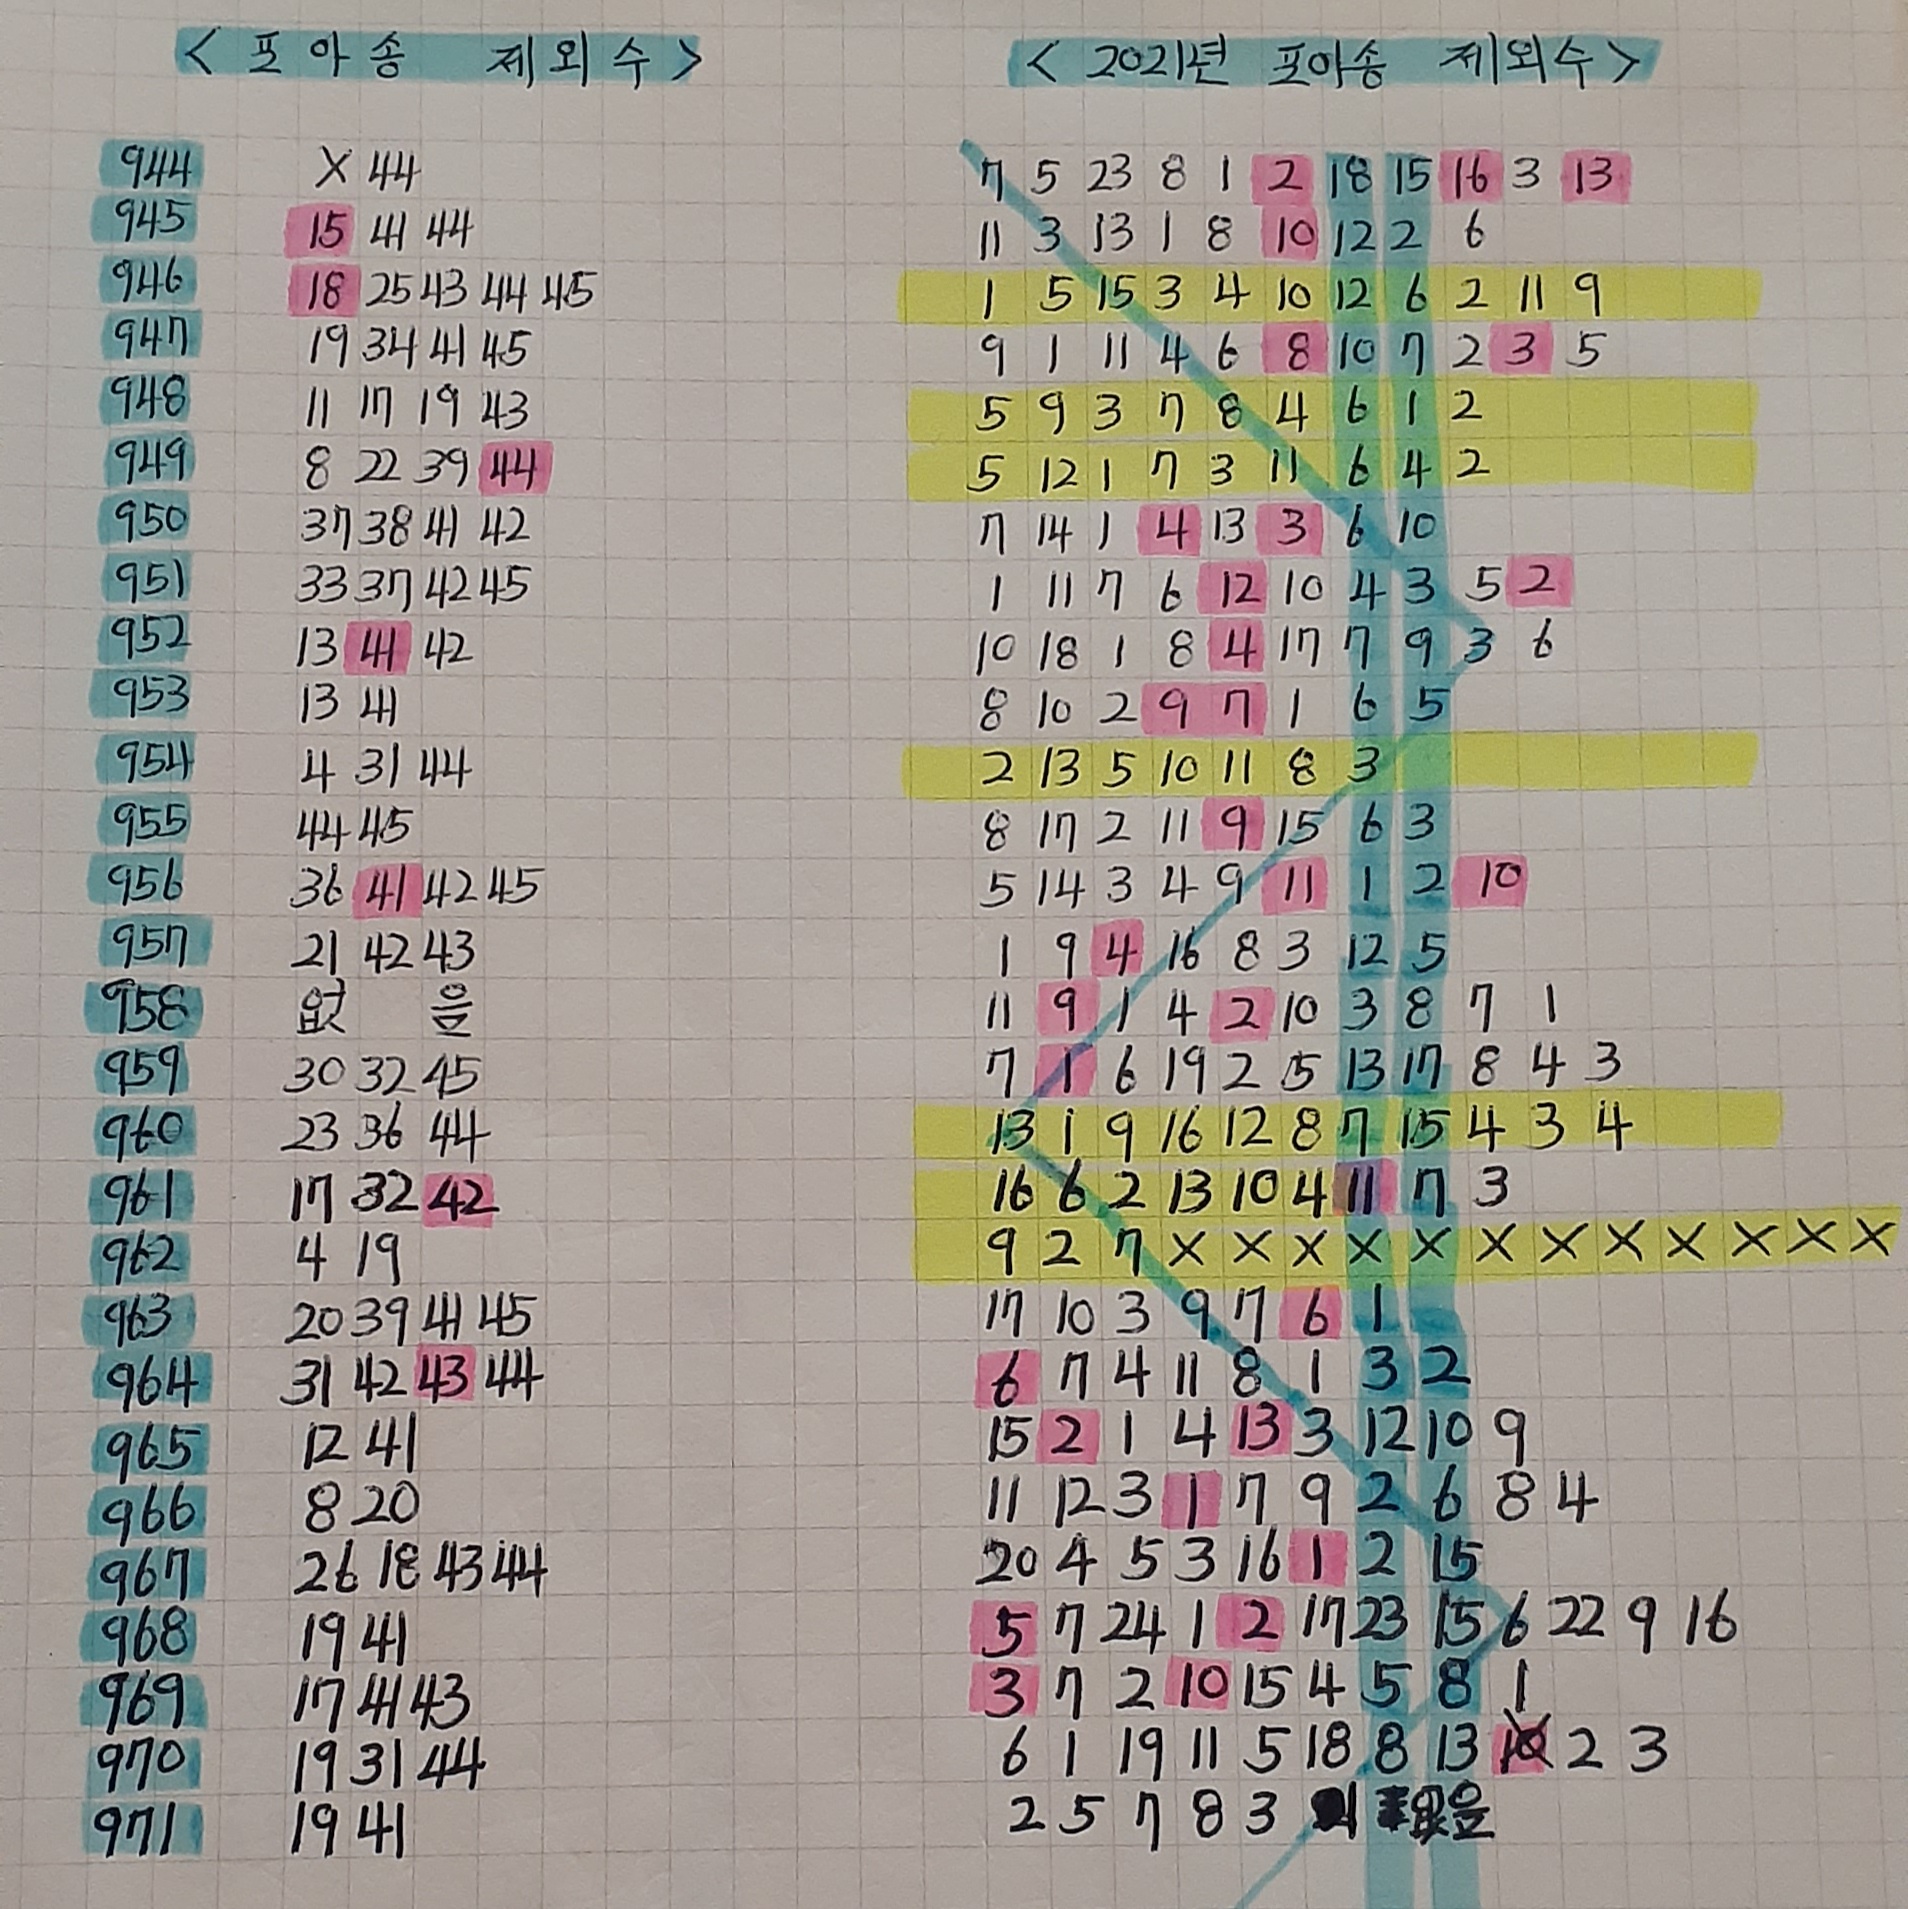 < 포아송 제외수 > < 2021년 포아송 제외수 >
944 X 44 7 5 23 8 1 2 18 15 16 3 13
945 15 41 44 11 3 13 1 8 10 12 2 6
946 18 25 43 44 45 1 5 15 3 4 10 12 6 2 11 9
947 19 34 41 45 9 1 11 4 6 8 10 7 2 3 5
948 11 17 19 43 5 9 3 7 8 4 6 1 2
949 8 22 39 44 5 12 1 7 3 11 6 4 2
950 37 38 41 42 7 14 1 4 13 3 6 10
951 33 37 42 45 1 11 7 6 12 10 4 3 5 2
952 13 41 42 10 18 1 8 4 17 7 9 3 6
953 13 41 8 10 2 9 7 1 6 5
954 4 31 44 2 13 5 10 11 8 3
955 44 45 8 17 2 11 9 15 6 3
956 36 41 42 45 5 14 3 4 9 11 1 2 10
957 21 42 43 1 9 4 16 8 3 12 5
958 없음 11 9 1 4 2 10 3 8 7 1
959 30 32 45 7 1 6 19 2 15 13 17 8 4 3
960 23 36 44 13 1 9 16 12 8 7 15 4 3 4
961 17 32 42 16 6 2 13 10 4 11 7 3
962 4 19 9 2 7 X X X X X X X X X X X X
963 20 39 41 45 17 10 3 9 7 6 1
964 31 42 43 44 6 7 4 11 8 1 3 2
965 12 41 15 2 1 4 13 3 12 10 9
966 8 20 11 12 3 1 7 9 2 6 8 4
967 26 18 43 44 20 4 5 3 16 1 2 15
968 19 41 5 7 24 1 2 17 23 15 6 22 9 16
969 17 41 43 3 7 2 10 15 4 5 8 1
970 19 31 44 6 1 19 11 5 18 8 13 10 2 3
971 19 41 2 5 7 8 3 없음